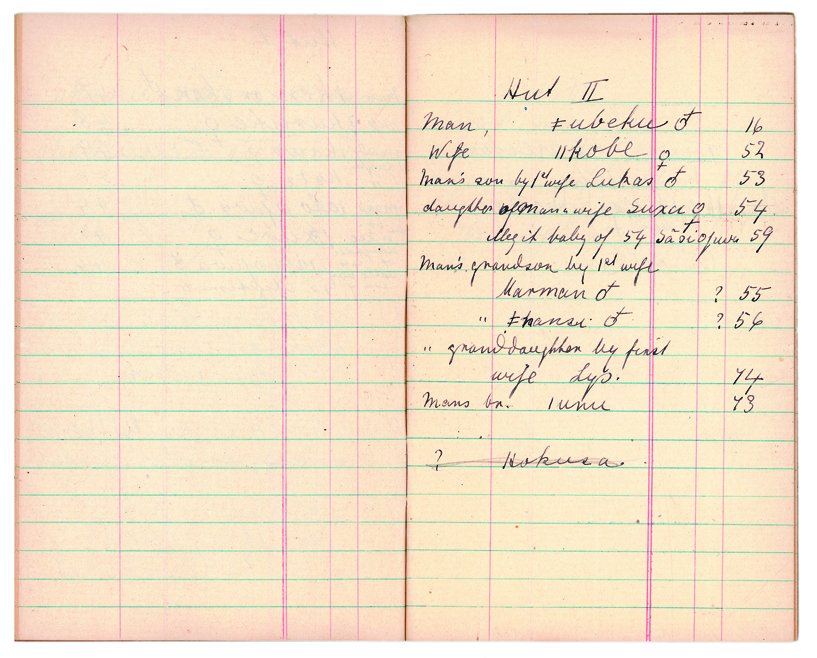 Hut II
Man, ǂubeku ♂ 16
Wife ǁkobe ♀ 52
Man's son by 1st wife Lukas ♂ 53
daughter of man & wife Suxu ♀ 54
Illegit baby of 54 59
Man's grandson by 1st wife
Marman ♂ ? 55
" ♂ ? 56
" granddaughter by first
wife Lys. 74
Mans br. ǀunu 73
? Hokusa